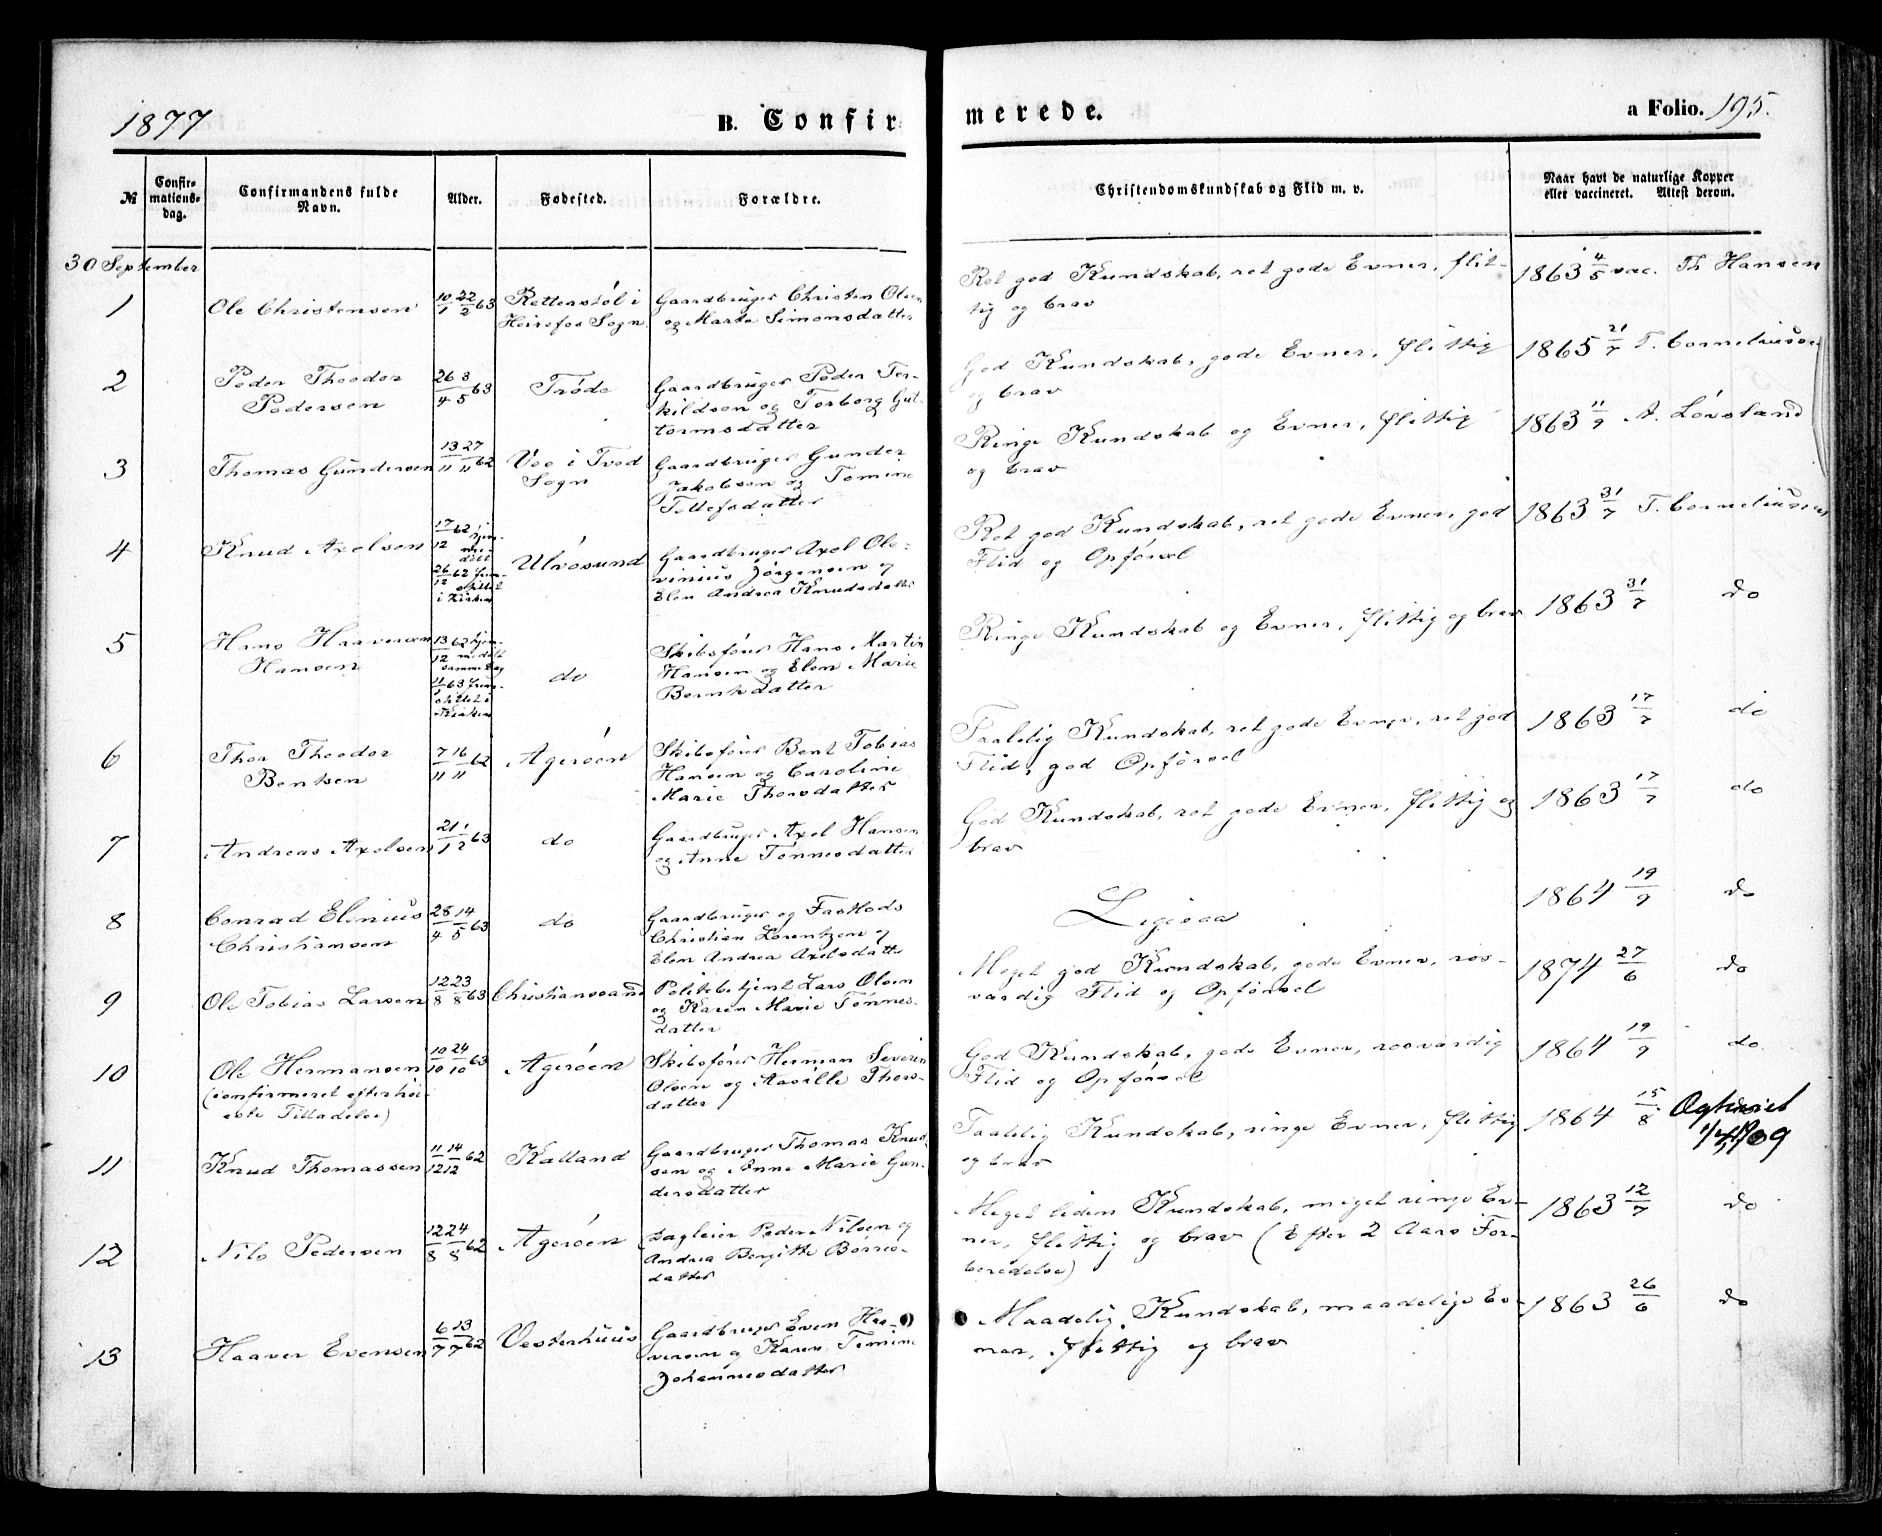 1877
B. Confirmerede.
a Folio. 195.
№
Confir-
mations-
dag.
Confirmandens fulde
Navn.
Alder.
Fødested.
Forældre.
Christendomskundskab og Flid m. v.
Naar havt de naturlige Kopper
eller vaccineret. Attest derom.
30 September
1
Ole Christensen
10/1 22/2 63
Rettenstøl i
Heirefos Sogn
Gaardbruger Christen Olsen
og Marte Simonsdatter
Ret god Kundskab, ret gode Evner, flit-
tig og brav
1863 4/5 vac. Th Hansen
2
Peder Theodor
Pedersen
26/4 3/5 63
Trøde
Gaardbruger Peder Ter-
kildsen og Torborg Gut-
tormsdatter
God Kundskab, gode Evner, flittig
og brav
1865 21/7 T. Corneliusen
3
Thomas Gundersen
13/11 27/11 62
Voe i Tved
Sogn
Gaardbruger Gunder
Jakobsen og Tomine
Tellefsdatter
Ringe Kundskab og Evner, flittig
og brav
1863 11/9 A. Løvsland
4
Knud Axelsen
17/12 62 hjem-
me-
døbt
26/12 62 frem-
stillet
i Kirken
Ulvøsund
Gaardbruger Axel Ole-
vinius Jørgensen og
Elen Andrea Knudsdatter
Ret god Kundskab, ret gode Evner, god
Flid og Opførsel
1863 31/7 T. Corneliusen
5
Hans Haaversen
Hansen
13/12 62 hjem-
medøbt
samme Dag
11/1 63 frem-
stillet i
Kirken
do
Skibsfører Hans Martin
Hansen og Elen Marie
Berntsdatter
Ringe Kundskab og Evner, flittig og brav
1863 31/7 do
6
Thor Theodor
Bentsen
7/11 16/11 62
Agerøen
Skibsfører Bent Tobias
Hansen og Caroline
Marie Thorsdatter
Taalelig Kundskab, ret gode Evner, ret god
Flid, god Opførsel
1863 17/7 do
7
Andreas Axelsen
21/1 1/2 63
do
Gaardbruger Axel Hansen
og Anne Tønnesdatter
God Kundskab, ret gode Evner, flittig og
brav
1863 17/7 do
8
Conrad Elenius
Christiansen
28/4 14/5 63
do
Gaardbruger og Fastlods
Christian Lorentzen og
Elen Andrea Axelsdatter
Ligesaa
1864 19/9 do
9
Ole Tobias Larsen
12/8 23/8 63
Christianssand
Politibetjent Lars Olsen
og Karen Marie Tønnes-
datter
Meget god Kundskab, gode Evner, ros-
værdig Flid og Opførsel
1874 27/6 do
10
Ole Hermansen
(confirmeret efter høi-
este Tilladelse)
10/10 24/10 63
Agerøen
Skibsfører Herman Severin
Olsen og Aasille Thors-
datter
God Kundskab, gode Evner, rosværdig
Flid og Opførsel
1864 19/9 do.
11
Knud Thomassen
11/12 14/12 62
Kalland
Gaardbruger Thomas Knud-
sen og Anne Marie Gun-
dersdatter
Taalelig Kundskab, ringe Evner, flittig
og brav
1864 15/8
12
Nils Pedersen
12/8 24/8 62
Agerøen
Dagleier Peder Nilsen og
Andrea Bergitte Børres-
datter
Meget liden Kundskab, meget ringe Ev-
ner, flittig og brav (Efter 2 Aars For-
beredelse)
1863 12/7 do
13
Haaver Evensen
6/7 13/7 62
Vesterhuus
Gaardbruger Even Haa-
versen og Karen Temine
Johannesdatter
Maadelig Kundskab, maadelige Ev-
ner, flittig og brav
1863 26/6 do